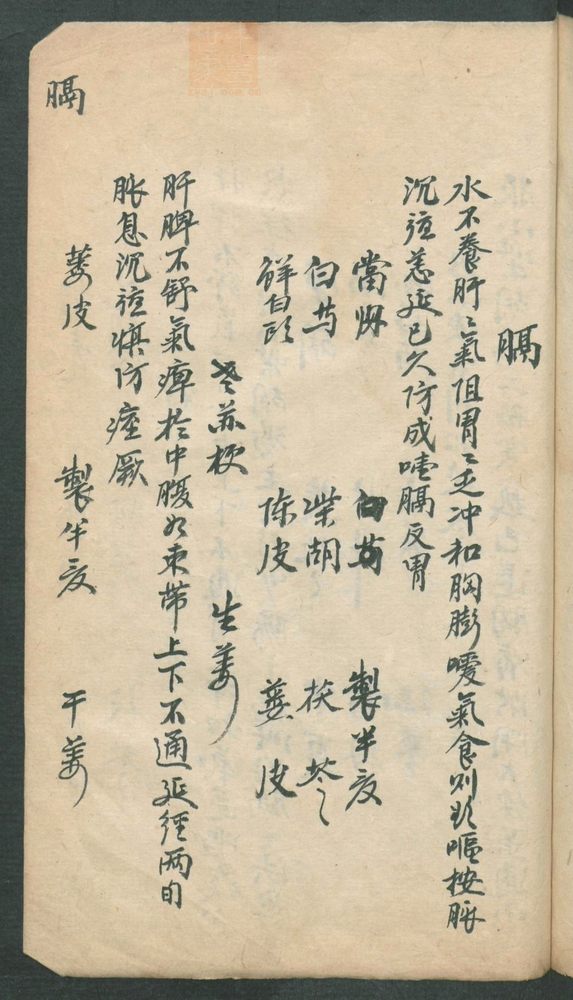 膈
水不養肝肝氣阻胃胃乏冲和胸膨噯氣食則欲嘔按脉
沉弦恙延已久防成噎膈反胃
當歸 白芍 製半夏
白芍 柴胡 茯苓
鮮白 陈皮 蔞皮
苏梗 生姜
肝脾不舒氣痺於中腰如束帶上下不通延經兩旬
脉息沉弦慎防痙厥
蔞皮 製半夏 干姜
膈